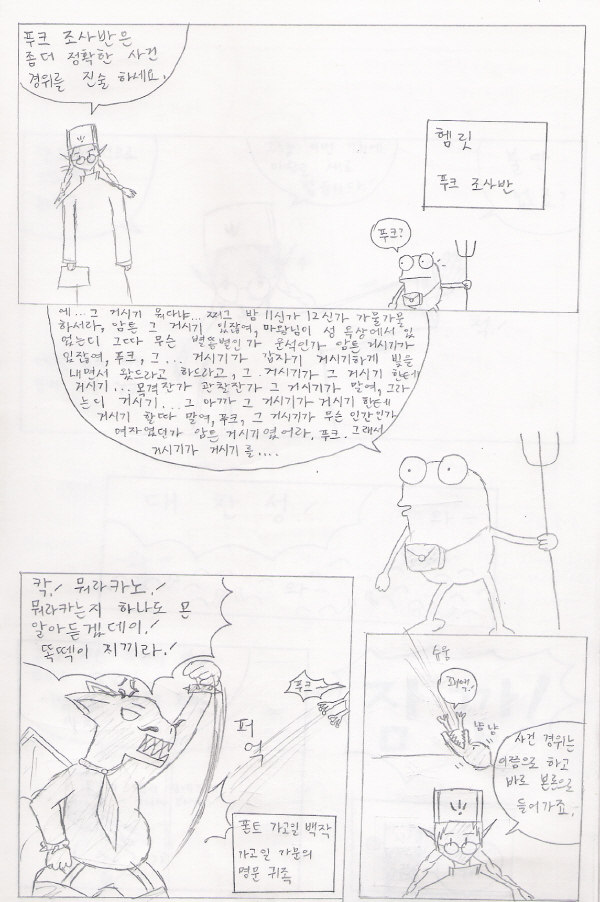 푸크 조사반은
좀더 정확한 사건
경위를 진술 하세요.
헴릿
푸크 조사반
푸크?
에...그 거시기 뭐다냐... 쩌그 밤 11신가 12신가 가물가물
하서라, 암튼 그 거시기 있잖여, 마왕님이 성 옥상에서 있
었는디 그따 무슨 별똥별인가 운석인가 암튼 거시기가
있잖여, 푸크, 그... 거시기가 갑자기 거시기하게 빛을
내면서 왔드라고 하드라고, 그.거시기가 그 거시기 한테
거시기... 목격잔가 관찰잔가 그 거시기가 말여, 그라
는디 거시기...그 아까 그 거시기가 거시기 한테
거시기 할따 말여, 푸크, 그 거시기가 무슨 인간인가
여자였던가 암튼 거시기였어라, 푸크. 그래서
거시기가 거시기를....
칵! 뭐라카노!
뭐라카는지 하나도 몬
알아듣겠데이!
똑떽이 지끼라!
푸크
퍼
억
폰트 가고일 백작
가고일 가문의
명문 귀족
슈웅
꽤액!
사건 경위는
이쯤으로 하고
바로 본론으로
들어가죠.